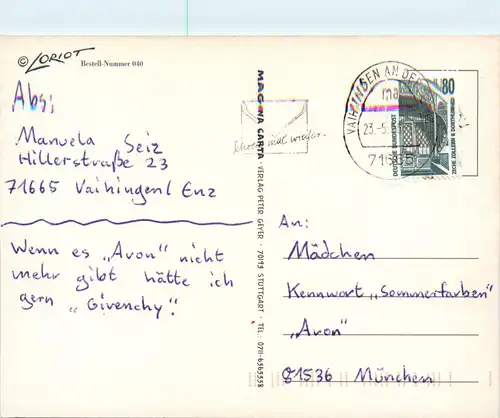 © LORIOT Bestell-Nummer 040
Abs:
Manuela Seiz
Hillerstraße 23
71665 Vaihingen/ Enz
Wenn es „Avon" nicht
mehr gibt hätte ich
gern „Givenchy".
MAGNA CARTA · VERLAG PETER GEYER · 70193 STUTTGART · TEL.: 0711-6365558
Schreib mal wieder.
VAIHINGEN AN DER
23.-5.
71665
80
DEUTSCHE BUNDESPOST
ZECHE ZOLLERN II DORTMUND
An:
Mädchen
Kennwort „Sommerfarben"
„Avon"
81536 München